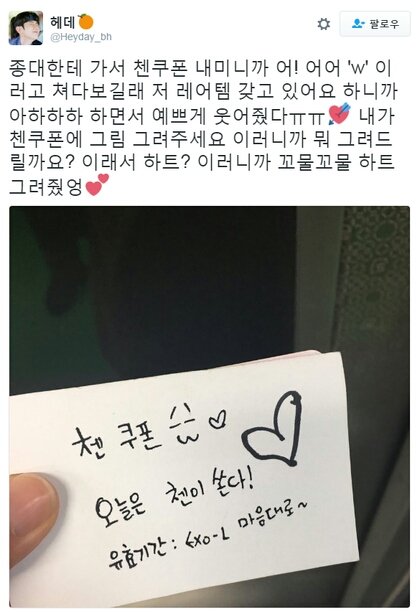 헤데🍊
@Heyday_bh
팔로우
종대한테 가서 첸쿠폰 내미니까 어! 어어 'w' 이
러고 쳐다보길래 저 레어템 갖고 있어요 하니까
아하하하 하면서 예쁘게 웃어줬다ㅠㅠ💘 내가
첸쿠폰에 그림 그려주세요 이러니까 뭐 그려드
릴까요? 이래서 하트? 이러니까 꼬물꼬물 하트
그려줬엉💕
첸 쿠폰
오늘은 첸이 쏜다!
유효기간 : EXO-L 마음대로~